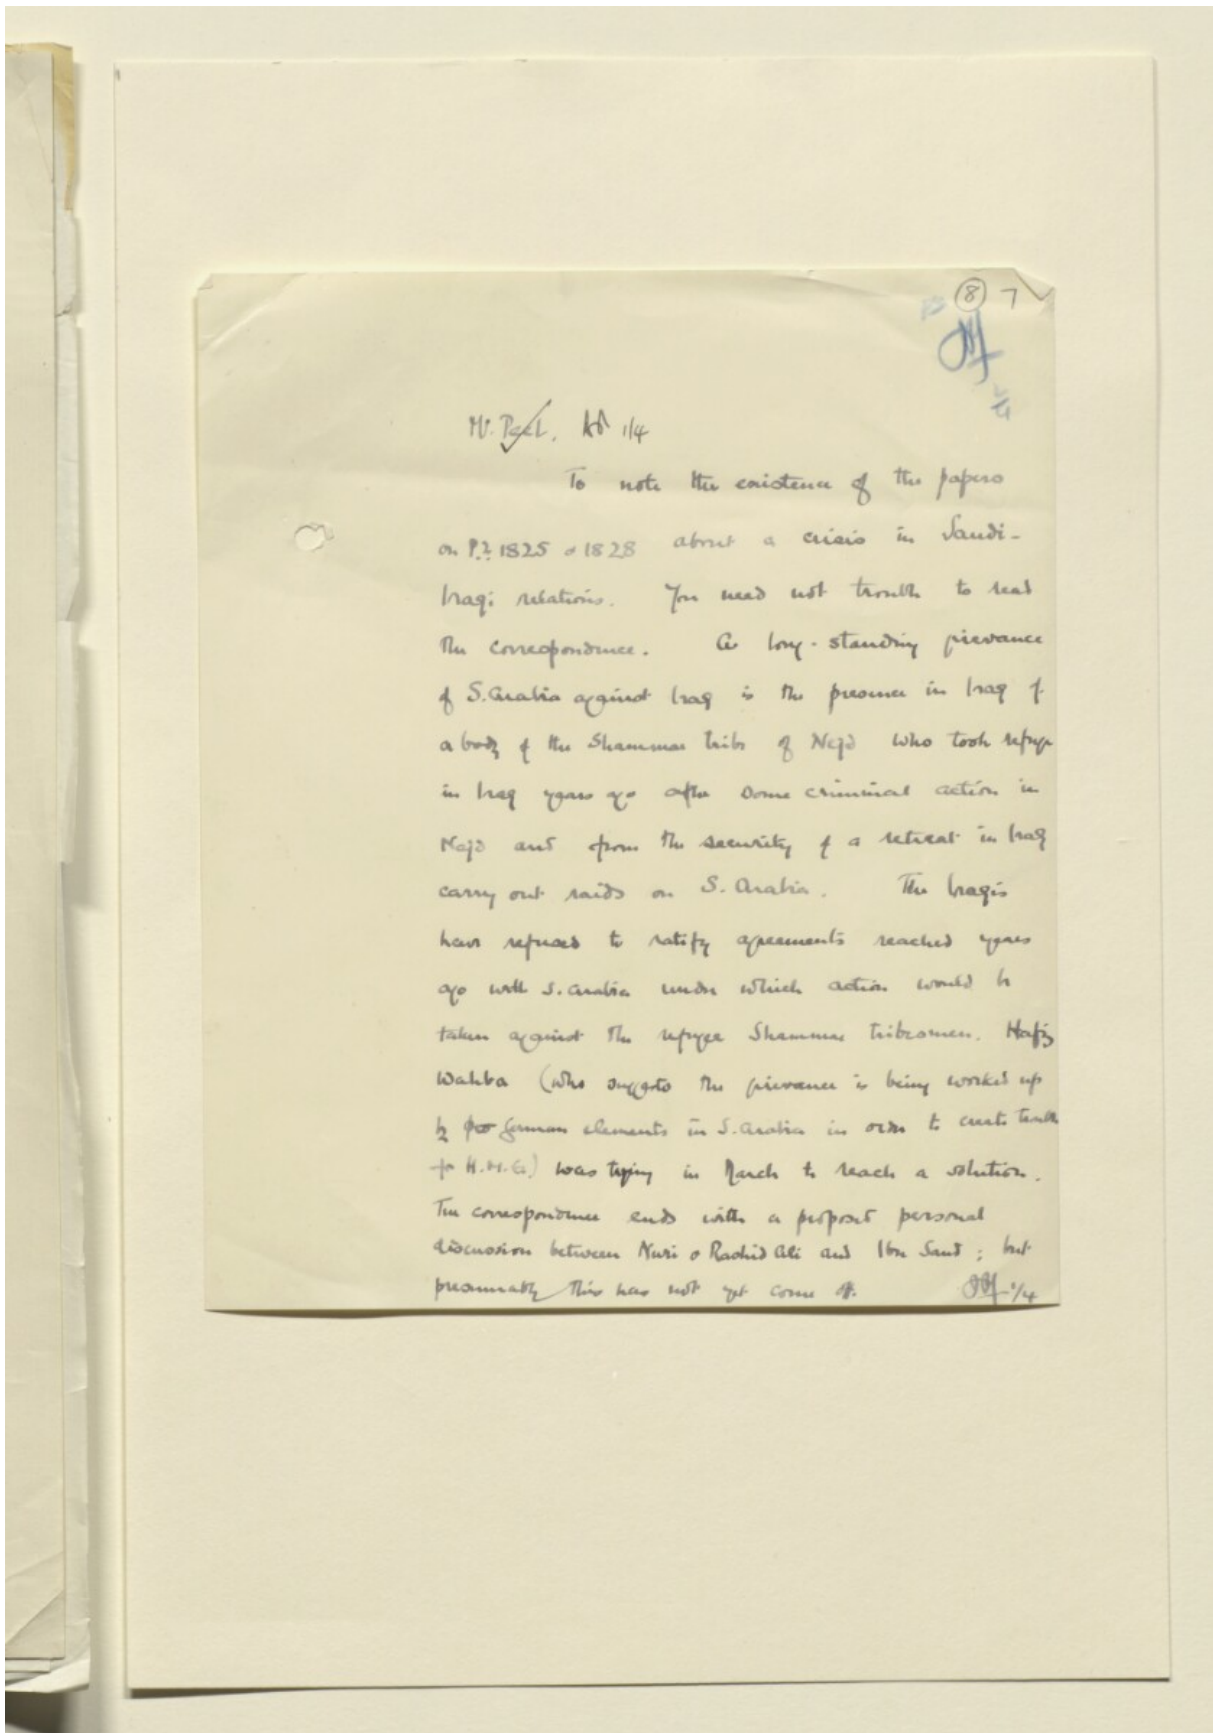 8 7
Mr. Peel. 1/4
To note the existence of the papers
on P.Z. 1825 & 1828 about a crisis in Saudi-
Iraqi relations. You need not trouble to read
the correspondence. A long-standing grievance
of S. Arabia against Iraq is the presence in Iraq of
a body of the Shammar tribe of Nejd who took refuge
in Iraq years ago after some criminal action in
Nejd and from the security of a retreat in Iraq
carry out raids on S. Arabia. The Iraqis
have refused to ratify agreements reached years
ago with S. Arabia under which action would be
taken against the refugee Shammar tribesmen. Hafiz
Wahba (who suggests the grievance is being worked up
by pro German elements in S. Arabia in order to create trouble
for H.M.G.) was trying in March to reach a solution.
The correspondence ends with a proposed personal
discussion between Nuri & Rashid Ali and Ibn Saud; but
presumably this has not yet come off. 1/4